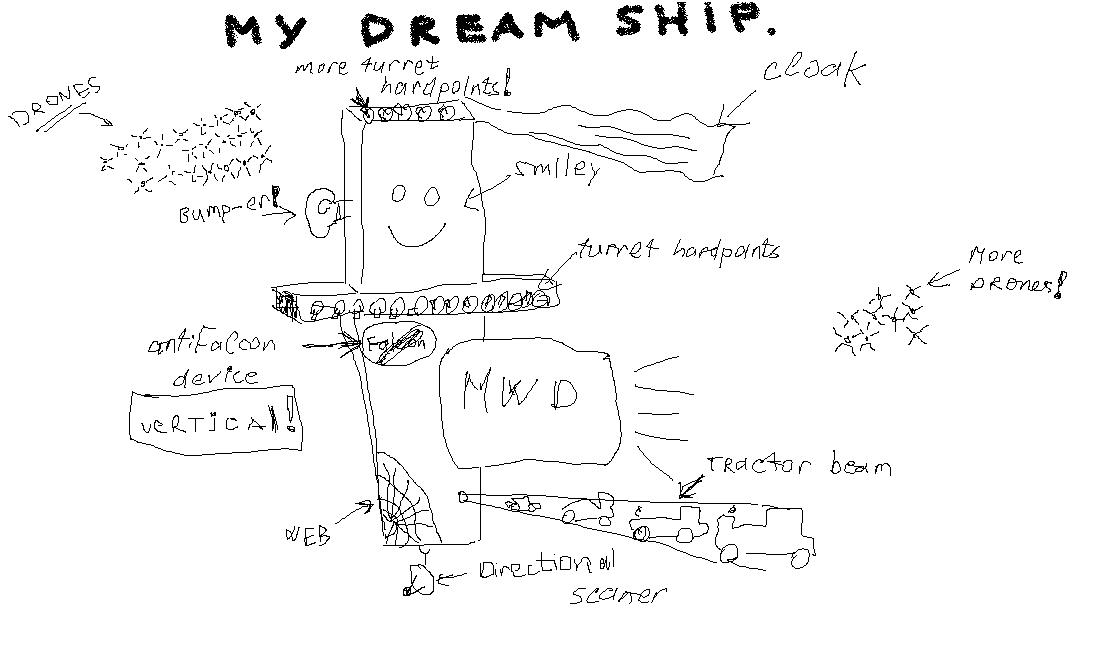 MY DREAM SHIP.
more turret
hardpoints!
cloak
DRONES
smiley
BUMP-er!
turret hardpants
More
DRones!
antiFalcon
device
Falcon
VeRTiCAl!
MWD
TRactor beam
WEB
Directional
scaner